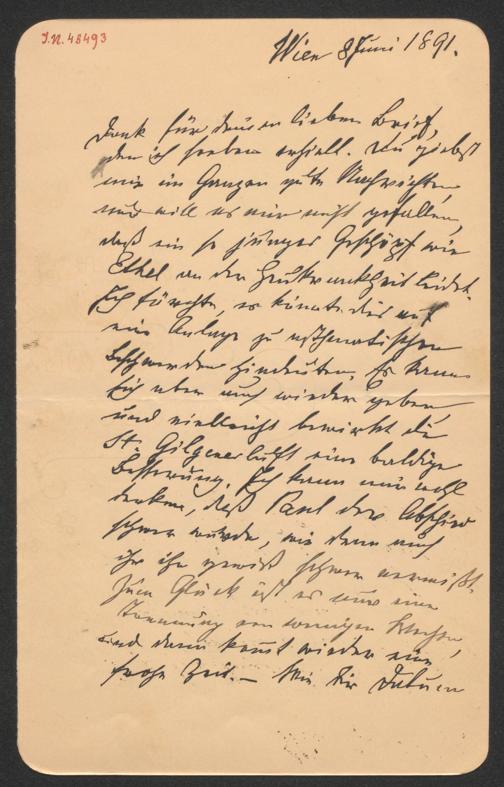 I.N. 48493
Wien 8 Juni 1891.
Dank für deinen lieben Brief,
den ich soeben erhielt. Du giebst
mir im Ganzen gute Nachrichten,
nur will es mir nicht gefallen,
daß ein so junges Geschöpf wie
Ethel an der Genickkrankheit leidet.
Ich fürchte, es könnte dies auf
eine Anlage zu asthmatischen
Beschwerden hindeuten. Es kann
sich aber auch wieder geben,
und vielleicht bewirkt die
St. Gilgenerluft eine baldige
Besserung. Ich kann mir wohl
denken, daß Paul der Abschied
schwer wurde, wie denn auch
ihr ihn gewiß schwer vermißt.
Zum Glück ist es nur eine
Trennung von wenigen Wochen,
und dann kommt wieder eine
frohe Zeit. – Wie Dir